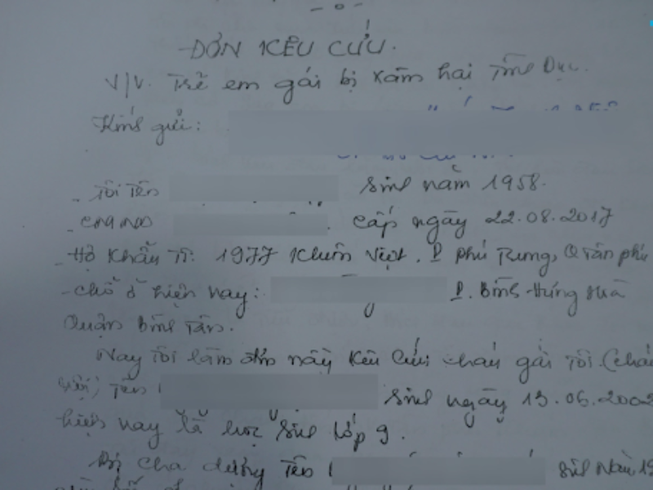 ĐƠN KÊU CỨU.
V/V. Trẻ em gái bị xâm hại Tình Dục.
Kính gửi:
- Tôi Tên sinh năm 1958.
- CMND cấp ngày 22.08.2017
- Hộ Khẩu TT: 1977 Khuôn Việt. P Phú Trung, Q Tân phú
- chỗ ở hiện nay: P. Bình Hưng Hoà
Quận Bình Tân.
Nay Tôi làm đơn này Kêu Cứu cháu gái Tôi. (cháu
Tên sinh ngày 13.06.200
hiện nay là học sinh lớp 9.
Bị cha dượng Tên sinh Năm 19